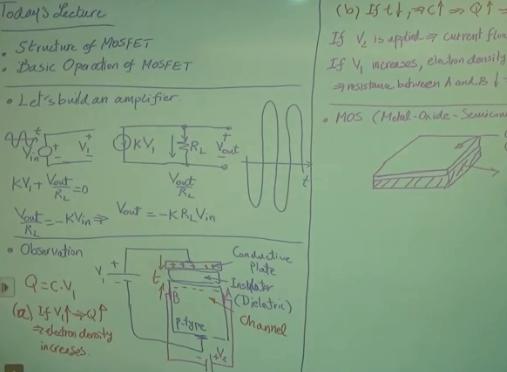 Today's Lecture
• Structure of MOSFET
• Basic Operation of MOSFET
• Let's build an amplifier.
t
Vin
+
V1
-
KV1
RL
+
Vout
-
t
KV1 + Vout/RL = 0
Vout/RL
Vout/RL = -KVin ⇒ Vout = -KRLVin
• Observation
Q = C.V1
(a) If V1↑ ⇒ Q↑
⇒ electron density
increases.
V1
+
-
t
+ + + +
Conductive
Plate
Insulator
(Dielectric)
Channel
B
P-type
V2
(b) If t↓, ⇒ C↑ ⇒ Q↑ =
If V2 is applied ⇒ current
If V1 increases, electron density
⇒ resistance between A and B ↓
• MOS (Metal-Oxide-